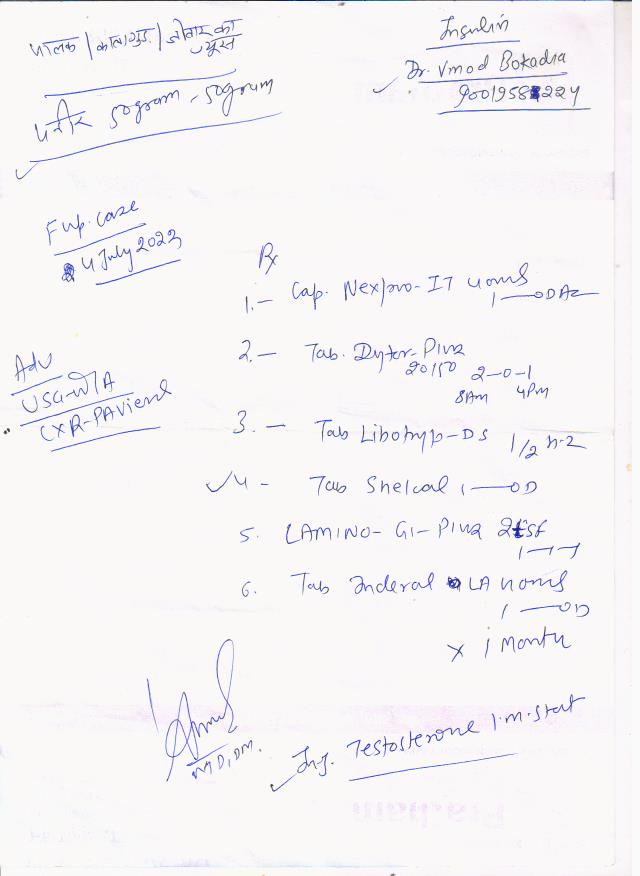 पालक / कालागुड़ / जीवार का
जूस
पनीर 50gram - 50gram
Insulin
Dr. Vinod Bokadia
F up. case
4 July 2023
Rx
1. - Cap. Nexpro-IT 40mg
1 — OD A2
2. - Tab. Dytor-Plus
20/50 2-0-1
8Am 4Pm
Adv
USG-W/A
CXR-PA View
3. - Tab Libotryp-DS 1/2
4 - Tab Shelcal 1 — OD
5. LAMINO-G Plus 2tsf
1-1-1
6. Tab Inderal LA 40mg
1 — OD
x 1 Month
MD, DM.
Inj. Testosterone I.M. stat